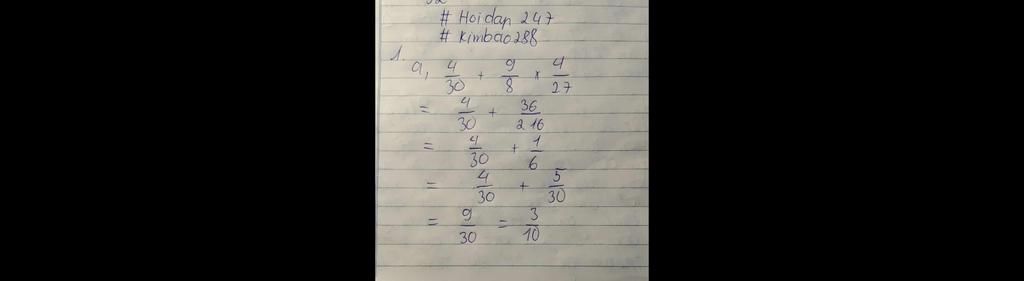 # Hoidap 247
# Kimbao288
1.
a, 4/30 + 9/8 x 4/27
= 4/30 + 36/216
= 4/30 + 1/6
= 4/30 + 5/30
= 9/30 = 3/10